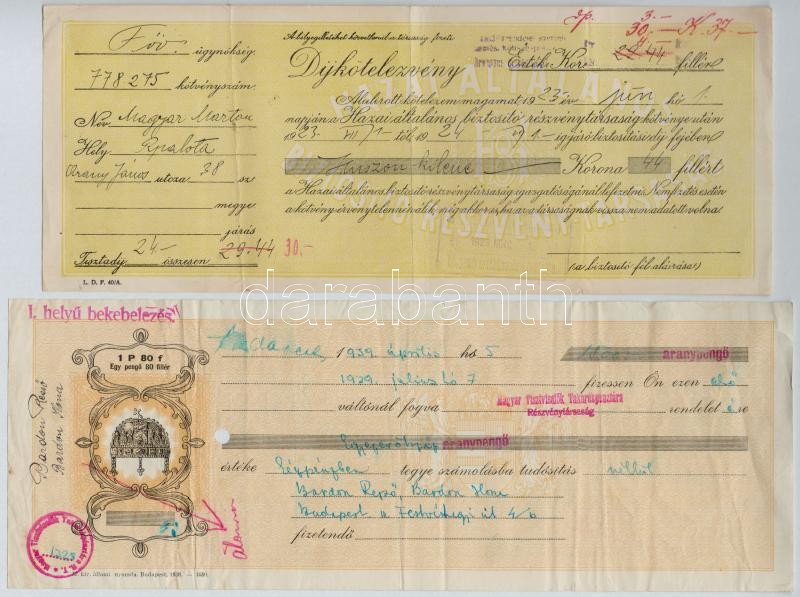 A bélyegilletéket közvetlenül a társaság fizeti
3.-
30.- K. 37.-
Föü. ügynökség.
778275 kötvényszám.
Díjkötelezvény
Érték: Koro 29.44 fillér
Név Magyar Márton
Alulírott kötelezem magamat, 1923 év jun hó 1.
napján a Hazai általános biztosító részvénytársaság kötvénye után
Hely Rpalota
1923. VII/1 től 1924 1-ig járó biztosítási díj fejében
Arany János utcza 38 sz
Huszon kilenc Korona 44 fillért
megye
a Hazai általános biztosító részvénytársaság igazgatóságánál lefizetni. Nemfizetés esetén
a kötvény érvénytelenné válik, még akkor is, ha az a társaságnak vissza nem adatott volna.
járás
Tisztadíj 24- összesen 29.44 30.-
(a biztosító fél aláírása)
L. D. F. 40/A.
darabanth
I. helyű bekebelezés
1 P 80 f
Egy pengő 80 fillér
1939. április hó 5
aranypengő
1939. julius hó 7 fizessen Ön ezen első
váltónál fogva
Magyar Tisztviselők Takarékpénztára
Részvénytársaság
rendeletére
aranypengő
értéke készpénzben tegye számolásba tudósítás nélkül
Bardon Rezső
Bardon Ilona
Bardon Rezső, Bardon Ilona
Budapest II Festvéhegyi út 4/b
fizetendő
M. kir. állami nyomda. Budapest, 1938.